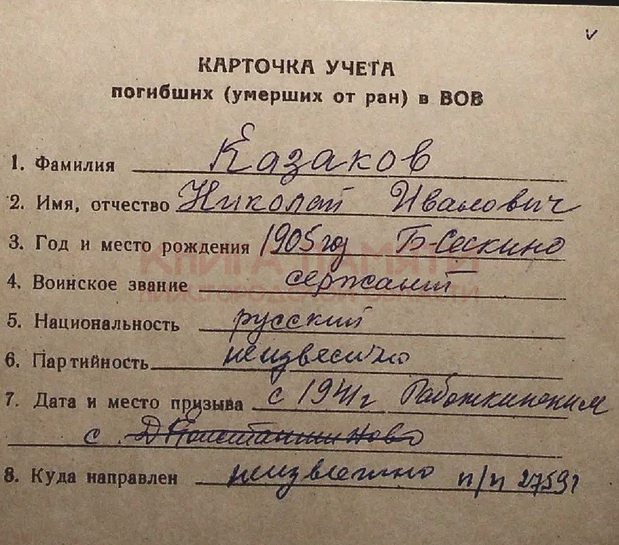 КАРТОЧКА УЧЕТА
погибших (умерших от ран) в ВОВ
1. Фамилия Казаков
2. Имя, отчество Николай Иванович
3. Год и место рождения 1905 год Б-Сескино
КНИГА ПАМЯТИ
НИЖЕГОРОДСКОЙ ОБЛАСТИ
4. Воинское звание сержант
5. Национальность русский
6. Партийность неизвестно
7. Дата и место призыва с 1941г Работкинским
с. Д Константиново
8. Куда направлен неизвестно п/п 27591